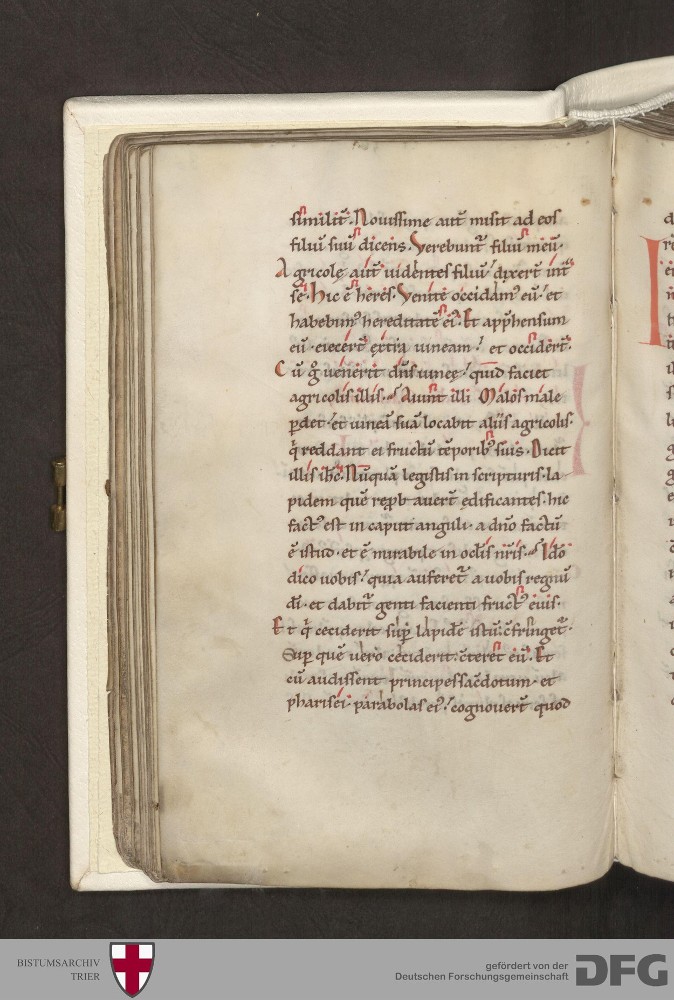 similit̄. Nouissime aut̄ misit ad eos
filiū suū dicens. Verebunt̄ filiū meū.
Agricolę aut̄ uidentes filiū. dixer̄t int̄
se. Hic ē heres. Venite occidam᷒ eū. et
habebim᷒ hereditatē ei᷒. Et app̄hensum
eū. eiecer̄t extra uineam. et occider̄t.
Cū g̊ uenerit dn̄s uineę. quid faciet
agricolis illis. Aiunt illi Malos male
ꝑdet. et uineā suā locabit aliis agricolis.
q̄ reddant ei fructū tēporib᷒ suis. Dicit
illis ih̄c. Nūquā legistis in scripturis. la
pidem quē reprobauer̄t edificantes. hic
fact᷒ est in caput anguli. a dn̄o factū
ē istud. et ē mirabile in oculis nr̄is. Ido
dico uobis. quia auferet̄ a uobis regnū
dī. et dabit̄ genti facienti fruct᷒ eius.
Et q̄ ceciderit sup̄ lapidē istū. c̄fringet̄.
Sup̄ quē uero ceciderit. c̄teret eū. Et
cū audissent principes sac̄dotum. et
pharisei. parabolas ei᷒. cognouer̄t quod
BISTUMSARCHIV
TRIER
gefördert von der
Deutschen Forschungsgemeinschaft
DFG